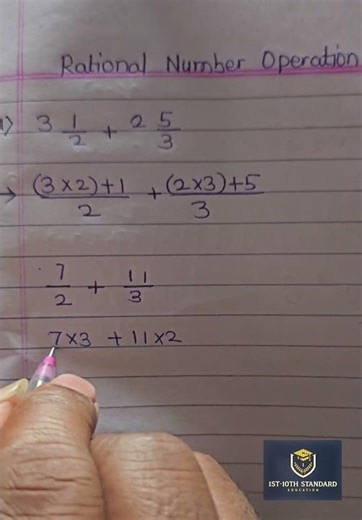 Rational Number Operation
1) 3 1/2 + 2 5/3
→ (3×2)+1/2 + (2×3)+5/3
7/2 + 11/3
7×3 + 11×2
1ST-10TH STANDARD
EDUCATION